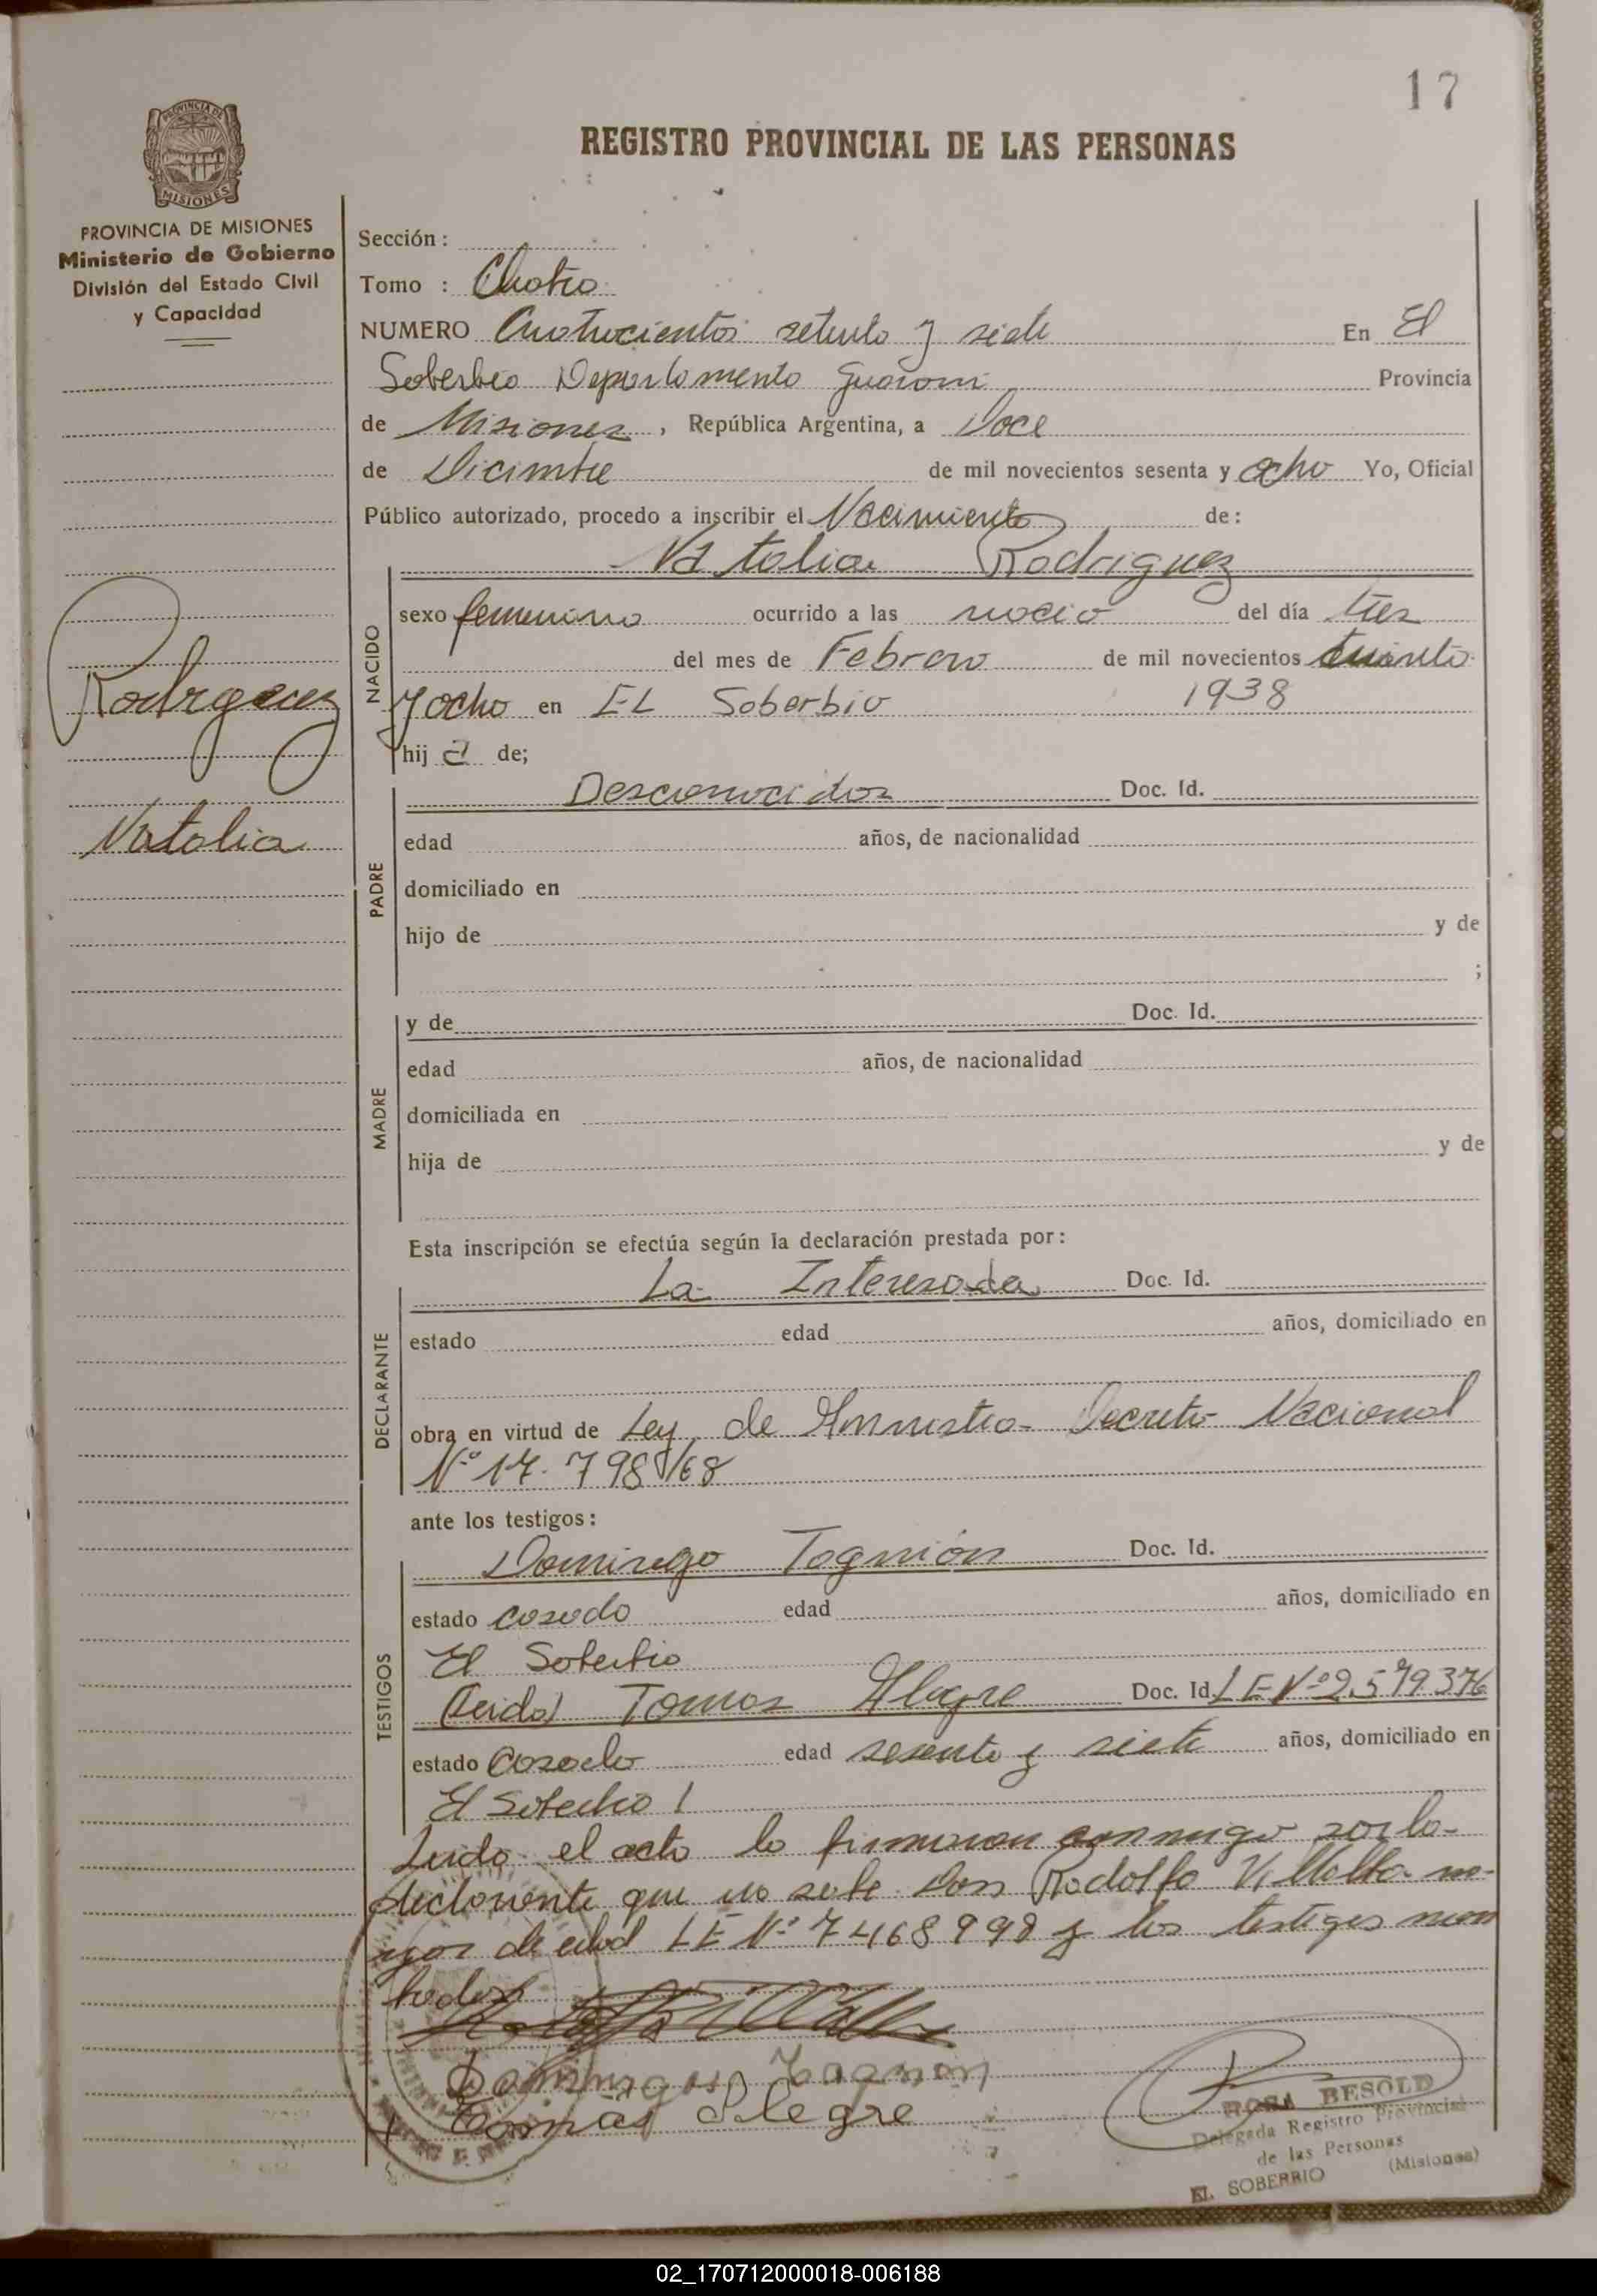 17
REGISTRO PROVINCIAL DE LAS PERSONAS
PROVINCIA DE MISIONES
PROVINCIA DE MISIONES
Ministerio de Gobierno
División del Estado Civil
y Capacidad
Rodriguez
Natalia
Sección :
Tomo : Cuatro
NUMERO Cuatrocientos setenta y siete En El
Soberbio Departamento Guarani Provincia
de Misiones, República Argentina, a Doce
de Diciembre de mil novecientos sesenta y ocho Yo, Oficial
Público autorizado, procedo a inscribir el Nacimiento de:
Natalia Rodriguez
NACIDO
sexo femenino ocurrido a las nació del día tres
del mes de Febrero de mil novecientos treinta
y ocho en EL Soberbio 1938
hij a de;
PADRE
Desconocidos Doc. Id.
edad años, de nacionalidad
domiciliado en
hijo de y de
;
MADRE
y de Doc. Id.
edad años, de nacionalidad
domiciliada en
hija de y de
Esta inscripción se efectúa según la declaración prestada por:
DECLARANTE
La Interesada Doc. Id.
estado edad años, domiciliado en
obra en virtud de Ley de Amnistia Decreto Nacional
Nº 17.798/68
ante los testigos:
TESTIGOS
Domingo Tognión Doc. Id.
estado casado edad años, domiciliado en
El Soberbio
Tomas Alegre Doc. Id. LE Nº 2.579.376
estado Casado edad sesenta y siete años, domiciliado en
El Soberbio
Leido el acto lo firmaron conmigo por la
declarante que no sabe Don Rodolfo Villalba ma-
yor de edad LE Nº 7468998 y los testigos
Domingo Tognon
Tomas Alegre
ROSA BESOLD
Delegada Registro Provincial
de las Personas
EL SOBERBIO (Misiones)
02_170712000018-006188